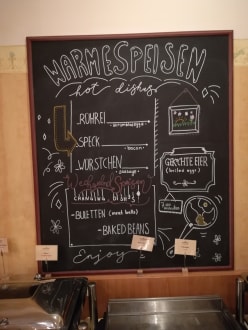 WARMESPEISEN
hot dishes
RÜHREI
- scrambled eggs -
SPECK
- bacon -
WÜRSTCHEN
- sausage -
Wechselnd Speisen
changing dishes
- BULETTEN (meat balls)
- BAKED BEANS
GEKOCHTE EIER
(boiled eggs)
Enjoy